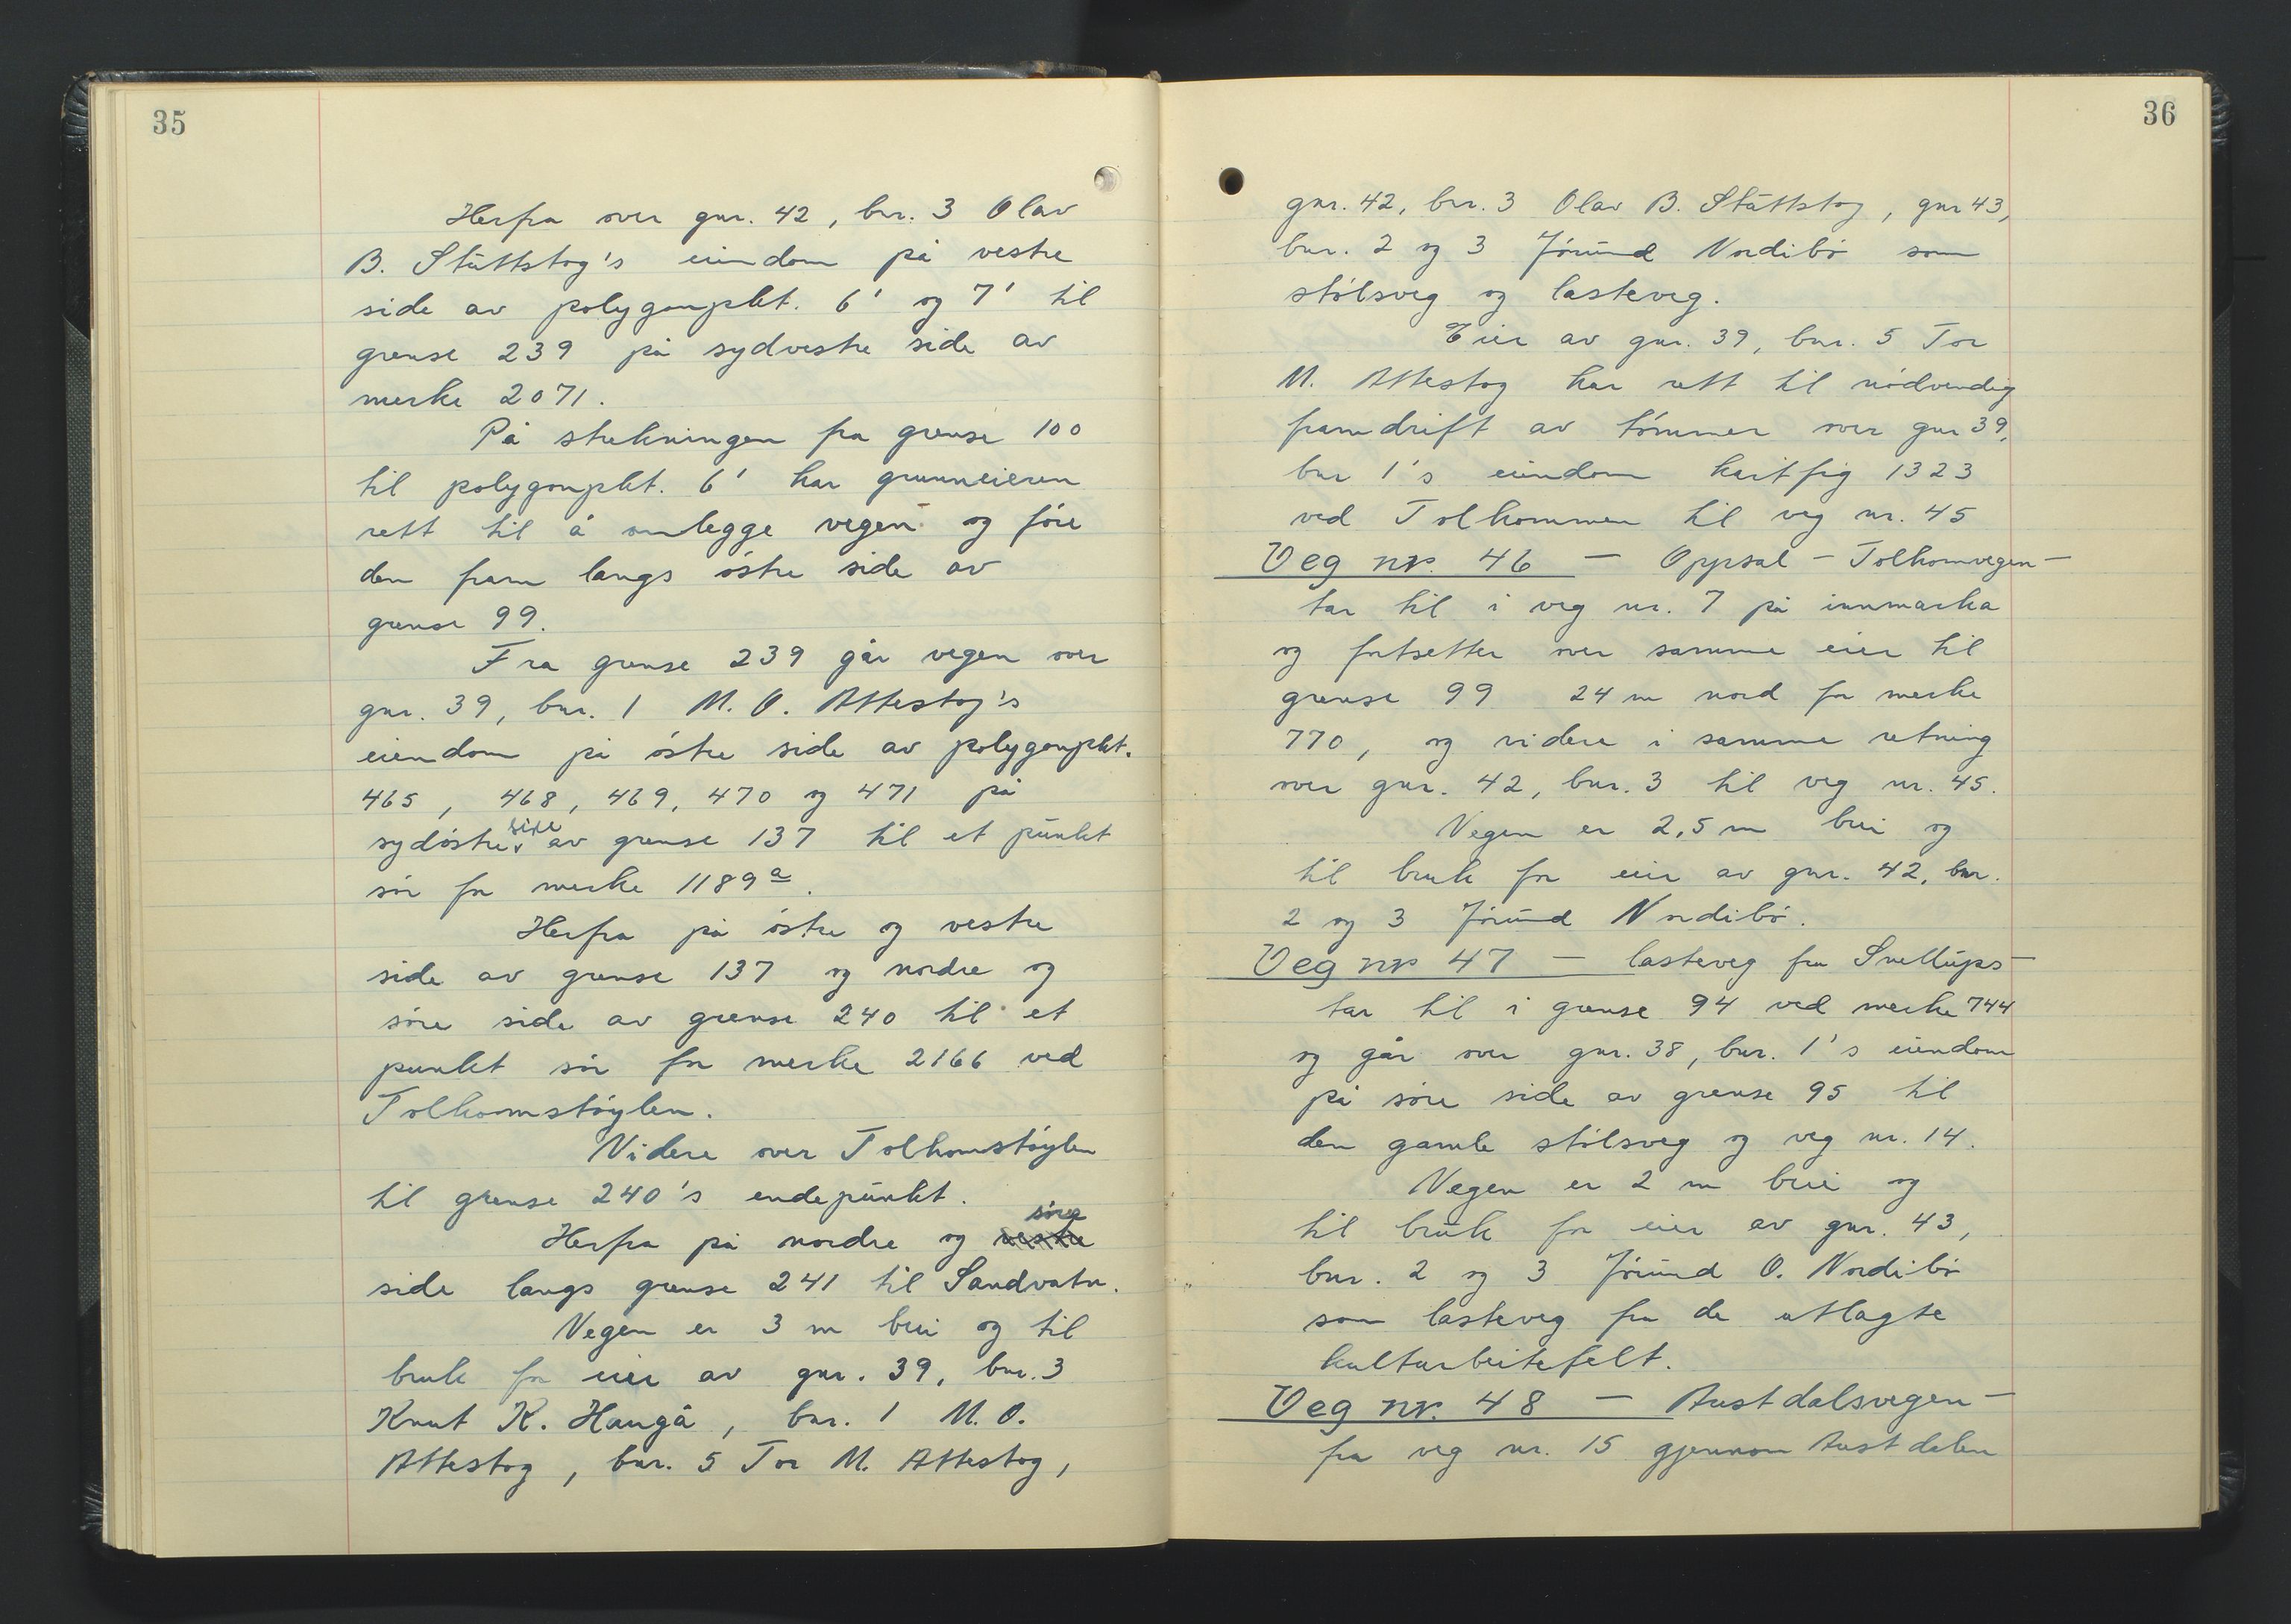 35
Herfra over gnr. 42, bnr. 3 Olav
B. Stuttstog's eiendom på vestre
side av polygonpkt. 6' og 7' til
grense 239 på sydvestre side av
merke 2071.
På strekningen fra grense 100
til polygonpkt. 6' har grunneieren
rett til å omlegge vegen og føre
den fram langs østre side av
grense 99.
Fra grense 239 går vegen over
gnr. 39, bnr. 1 M. O. Attestog's
eiendom på østre side av polygonpkt.
465, 468, 469, 470 og 471 på
sydøstre side av grense 137 til et punkt
sør for merke 1189a.
Herfra på østre og vestre
side av grense 137 og nordre og
søre side av grense 240 til et
punkt sør for merke 2166 ved
Tolhomstøylen.
Videre over Tolhomstøylen
til grense 240's endepunkt.
Herfra på nordre og vestre søre
side langs grense 241 til Sandvatn.
Vegen er 3 m brei og til
bruk for eier av gnr. 39, bnr. 3
Knut K. Haugå, bnr. 1 M. O.
Attestog, bnr. 5 Tor M. Attestog,
36
gnr. 42, bnr. 3 Olav B. Stuttstog, gnr 43,
bnr. 2 og 3 Jørund Nordibø som
stølsveg og lasteveg.
Eier av gnr. 39, bnr. 5 Tor
M. Attestog har rett til nødvendig
framdrift av tømmer over gnr 39,
bnr 1's eiendom kartfig 1323
ved Tolhommen til veg nr. 45
Veg nr. 46 — Oppsal - Tolhomvegen —
tar til i veg nr. 7 på innmarka
og fortsetter over samme eier til
grense 99 24 m nord for merke
770, og videre i samme retning
over gnr. 42, bnr. 3 til veg nr. 45.
Vegen er 2,5 m brei og
til bruk for eier av gnr. 42, bnr.
2 og 3 Jørund Nordibø.
Veg nr 47 — lasteveg fra Snellups —
tar til i grense 94 ved merke 744
og går over gnr. 38, bnr. 1's eiendom
på søre side av grense 95 til
den gamle stølsveg og veg nr. 14.
Vegen er 2 m brei og
til bruk for eier av gnr. 43,
bnr. 2 og 3 Jørund O. Nordibø
som lasteveg fra de utlagte
kulturbeitefelt.
Veg nr. 48 — Austdalsvegen —
fra veg nr. 15 gjennom Austdalen